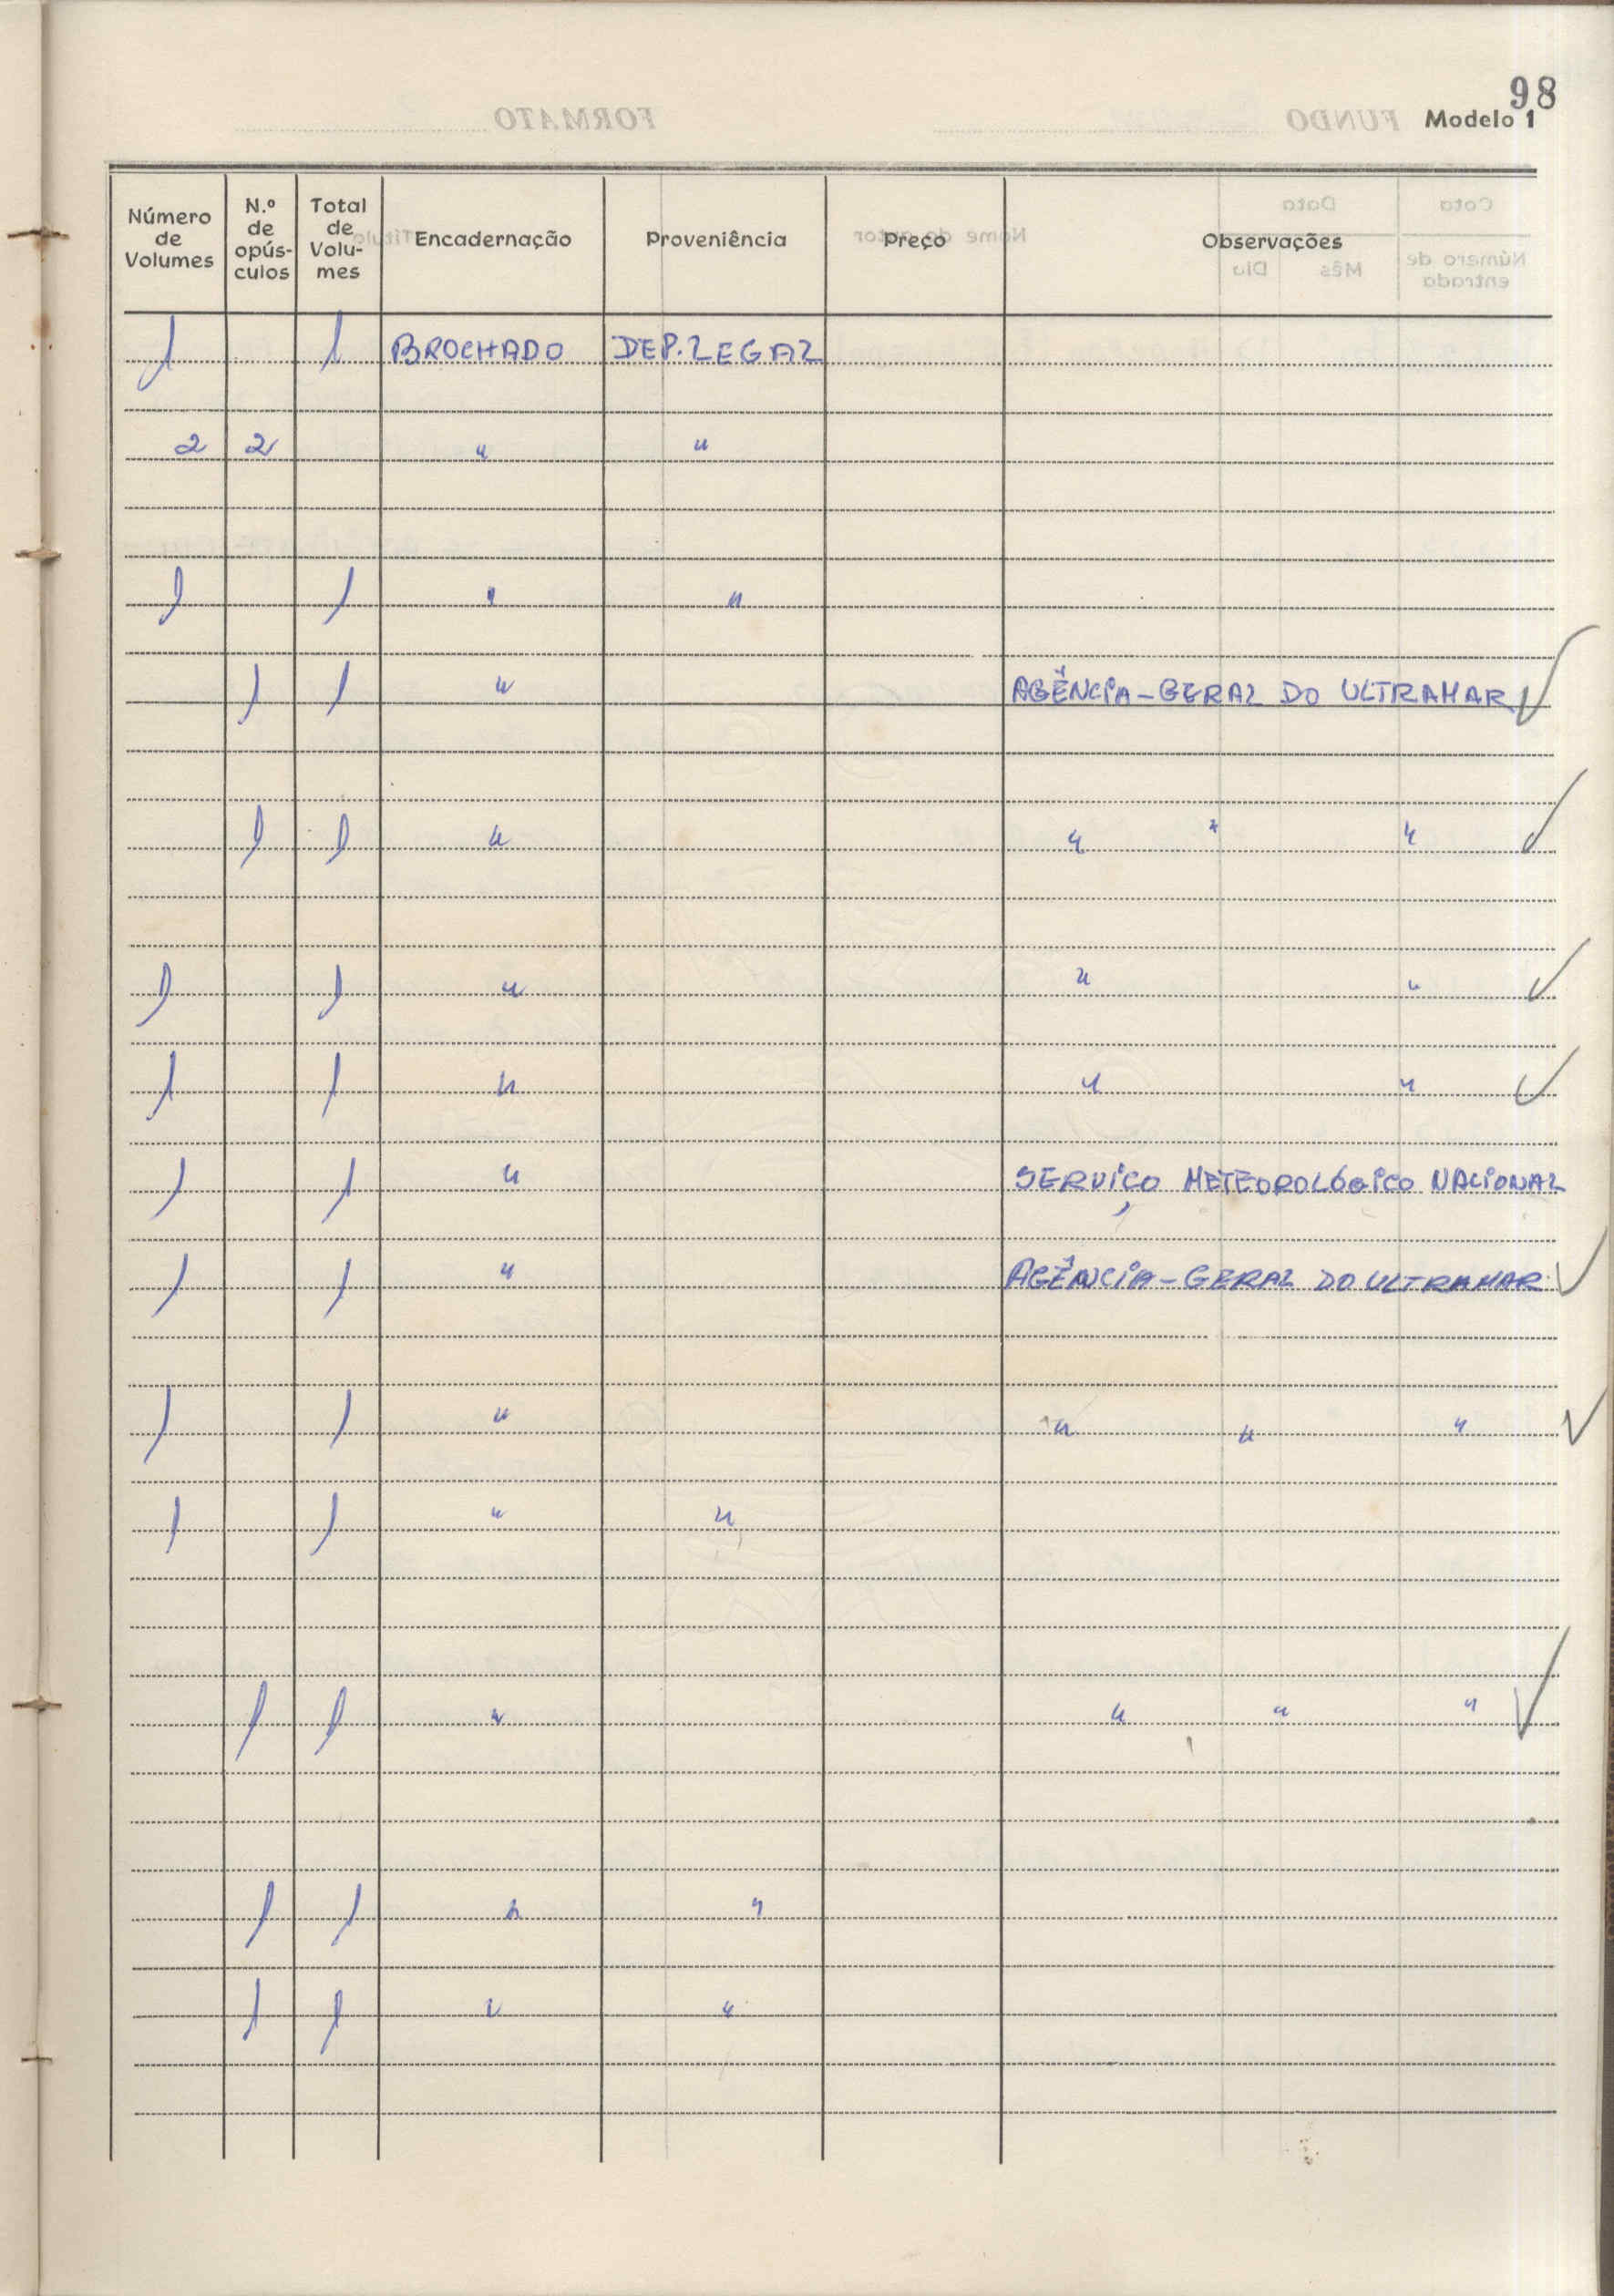 98
Modelo 1
Número de Volumes | N.º de opús-culos | Total de Volu-mes | Encadernação | Proveniência | Preço | Observações
1 | | 1 | BROCHADO | DEP. LEGAL | |
2 | 2 | | " | " | |
1 | | 1 | " | " | |
| 1 | 1 | " | | | AGÊNCIA-GERAL DO ULTRAMAR ✓
| 1 | 1 | " | | | " " " ✓
1 | | 1 | " | | | " " ✓
1 | | 1 | " | | | " " ✓
1 | | 1 | " | | | SERVIÇO METEOROLÓGICO NACIONAL
1 | | 1 | " | | | AGÊNCIA-GERAL DO ULTRAMAR ✓
1 | | 1 | " | | | " " " ✓
1 | | 1 | " | " | |
| 1 | 1 | " | | | " " " ✓
| 1 | 1 | " | " | |
| 1 | 1 | " | " | |